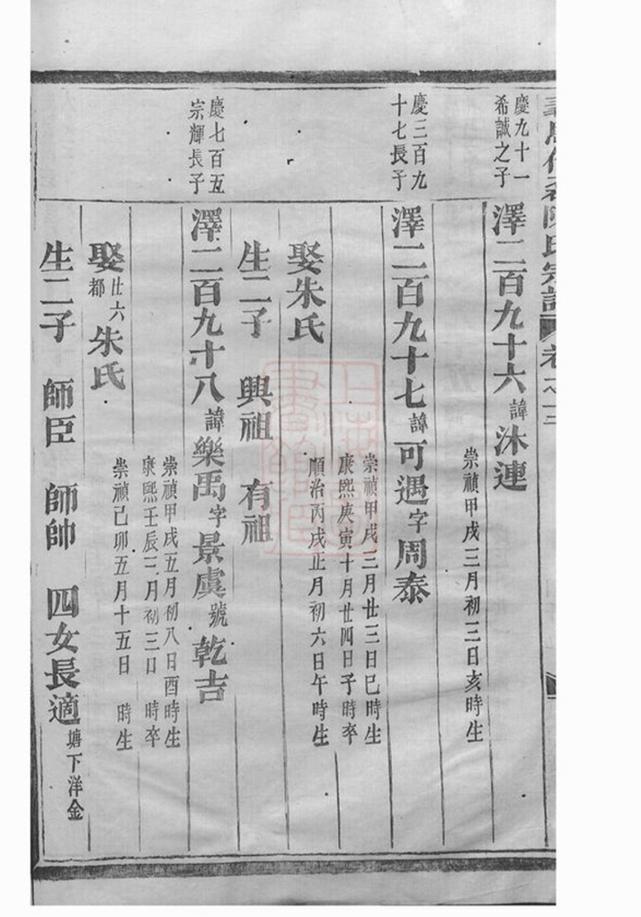 陳氏宗譜
慶九十一
希誠之子
澤二百九十六諱沐連
崇禎甲戌三月初三日亥時生
慶三百九
十七長子
澤二百九十七諱可遇字周泰
崇禎甲戌三月廿三日巳時生
康熙庚寅十月廿四日子時卒
娶朱氏
順治丙戌正月初六日午時生
生二子 興祖 有祖
慶七百五
宗輝長子
澤二百九十八諱樂禹字景虞號乾吉
崇禎甲戌五月初八日酉時生
康熙壬辰三月初三日 時卒
娶廿六都朱氏
崇禎己卯五月十五日 時生
生二子 師臣 師帥 四女長適塘下洋金